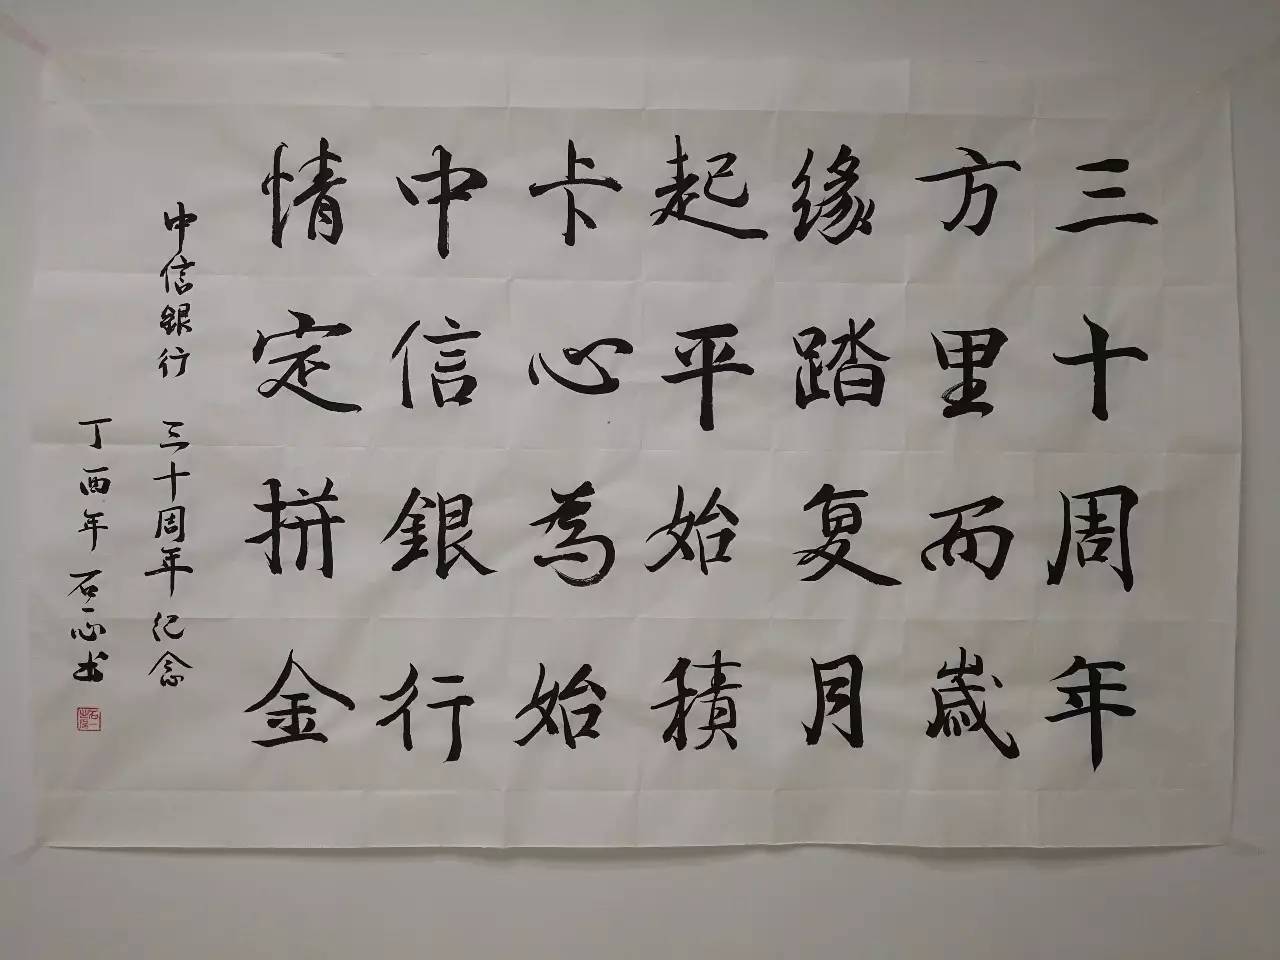 三方缘起卡中情
十里踏平心信定
周而复始為銀拼
年歲月積始行金
中信銀行 三十周年纪念
丁酉年 石一心书